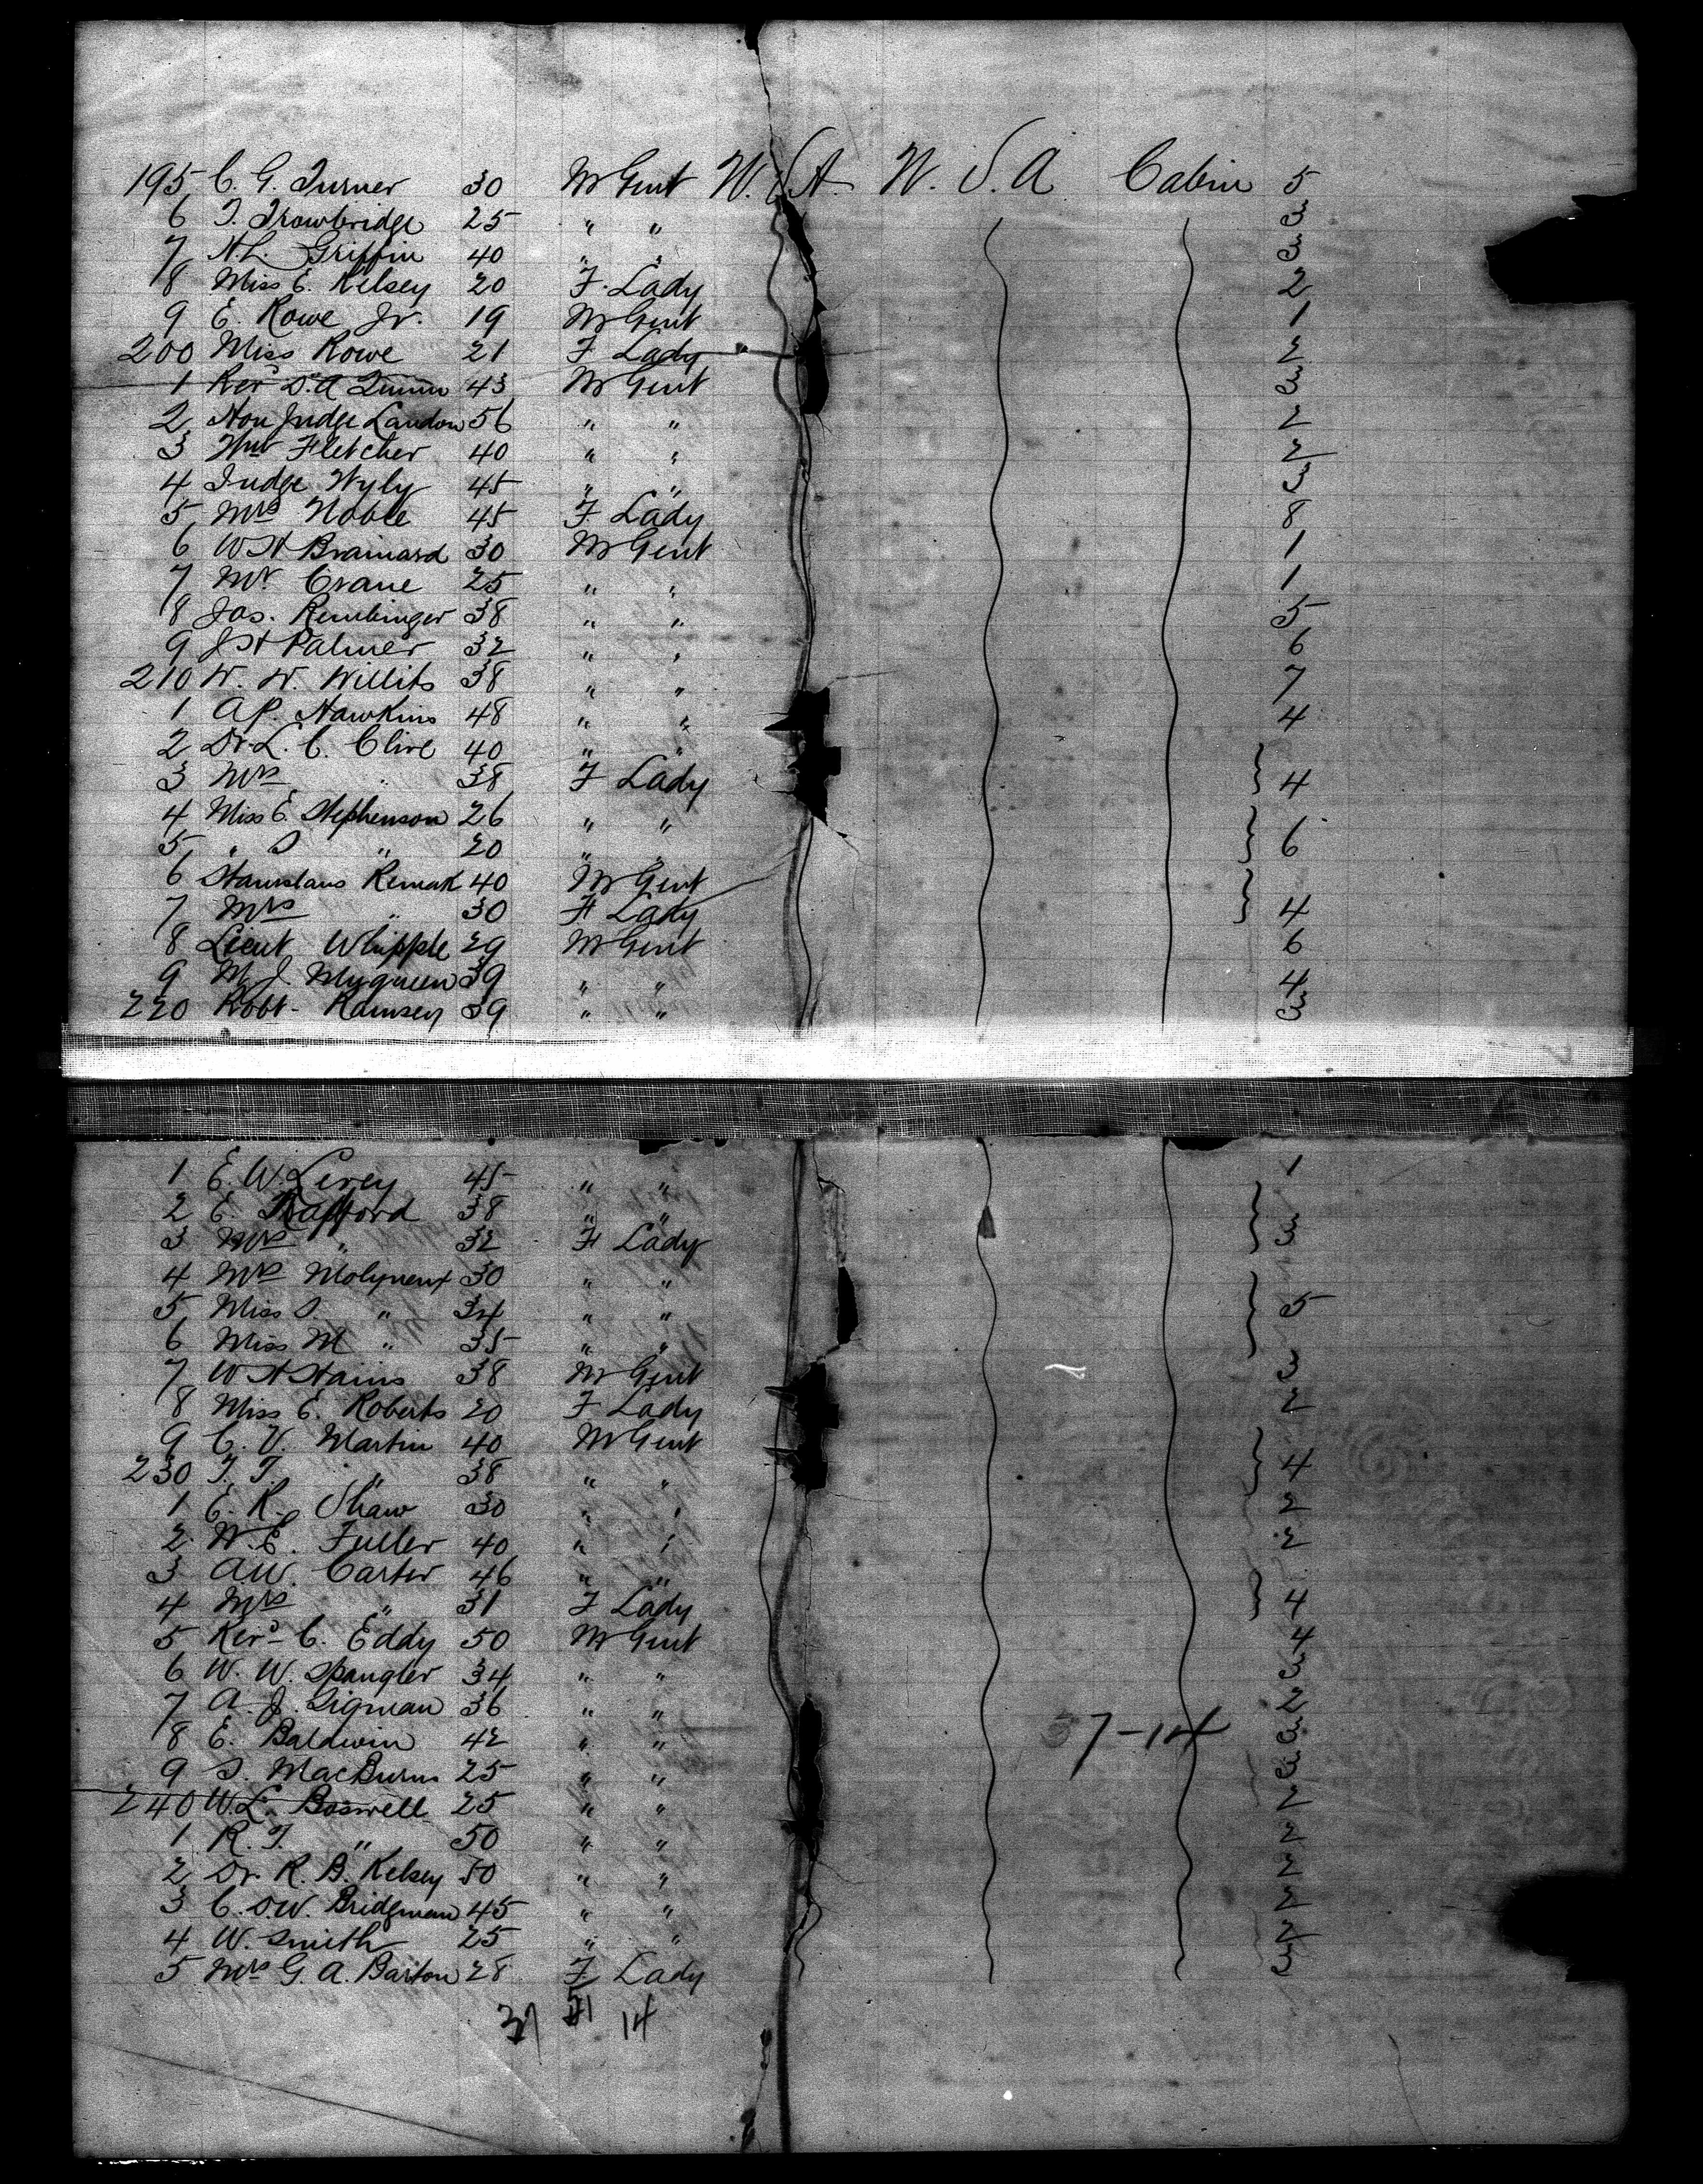 195 C. G. Turner 30 M Gent U.S.A. U.S.A Cabin 5
6 T. Trowbridge 25 " " 3
7 N.L. Griffin 40 " " 3
8 Miss E. Kelsey 20 F. Lady 2
9 E. Rowe Jr. 19 M Gent 1
200 Miss Rowe 21 F Lady 2
1 Revd D.A Quinn 43 M Gent 3
2 Hon Judge Landon 56 " " 2
3 Wm Fletcher 40 " " 2
4 Judge Wyly 45 " " 3
5 Mrs Noble 45 F Lady 8
6 W H Brainard 30 M Gent 1
7 Mr Crane 25 " " 1
8 Jas. Rembinger 38 " " 5
9 J H Palmer 32 " " 6
210 W. W. Willits 38 " " 7
1 A P. Hawkins 48 " " 4
2 Dr L. C. Clive 40 " "
3 Mrs " 38 F Lady 4
4 Miss E Stephenson 26 " "
5 " S " 20 " " 6
6 Stanislaus Remak 40 M Gent
7 Mrs " 30 F Lady 4
8 Lieut Whipple 29 M Gent 6
9 M. J. 39 " " 4
220 Robt- Ramsey 39 " " 3
1 E. W. Levey 45 " " 1
2 E. Trafford 38 " "
3 Mrs " 32 F Lady 3
4 Mrs Molyneux 30 " "
5 Miss S. " 34 " " 5
6 Miss M " 35 " "
7 W H Hains 38 M Gent 3
8 Miss E. Roberts 20 F Lady 2
9 C. V. Martin 40 M Gent
230 T. T. " 38 " " 4
1 E. R. Shaw 30 " " 2
2 W. E. Fuller 40 " " 2
3 A.W. Carter 46 " "
4 Mrs " 31 F Lady 4
5 Revd- C. Eddy 50 M Gent 4
6 W. W. Spangler 34 " " 3
7 A. J. Sigman 36 " " 2
8 E. Baldwin 42 " " 37-14 3
9 S. MacBurns 25 " " 3
240 W.L. Boswell 25 " " 2
1 R. T. " 50 " " 2
2 Dr. R. B. Kelsey 50 " " 2
3 C. S.W. Bridgman 45 " " 2
4 W. Smith 25 " " 2
5 Mrs G. A. Barton 28 F Lady 3
37 51 14